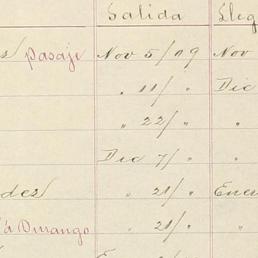 Salida Lleg
pasaje Nov 5/09 Nov
" 11/ " Dic
" 22/ " "
Dic 7/ " "
dez " 21/ " Ener
Durango " 21/ " "